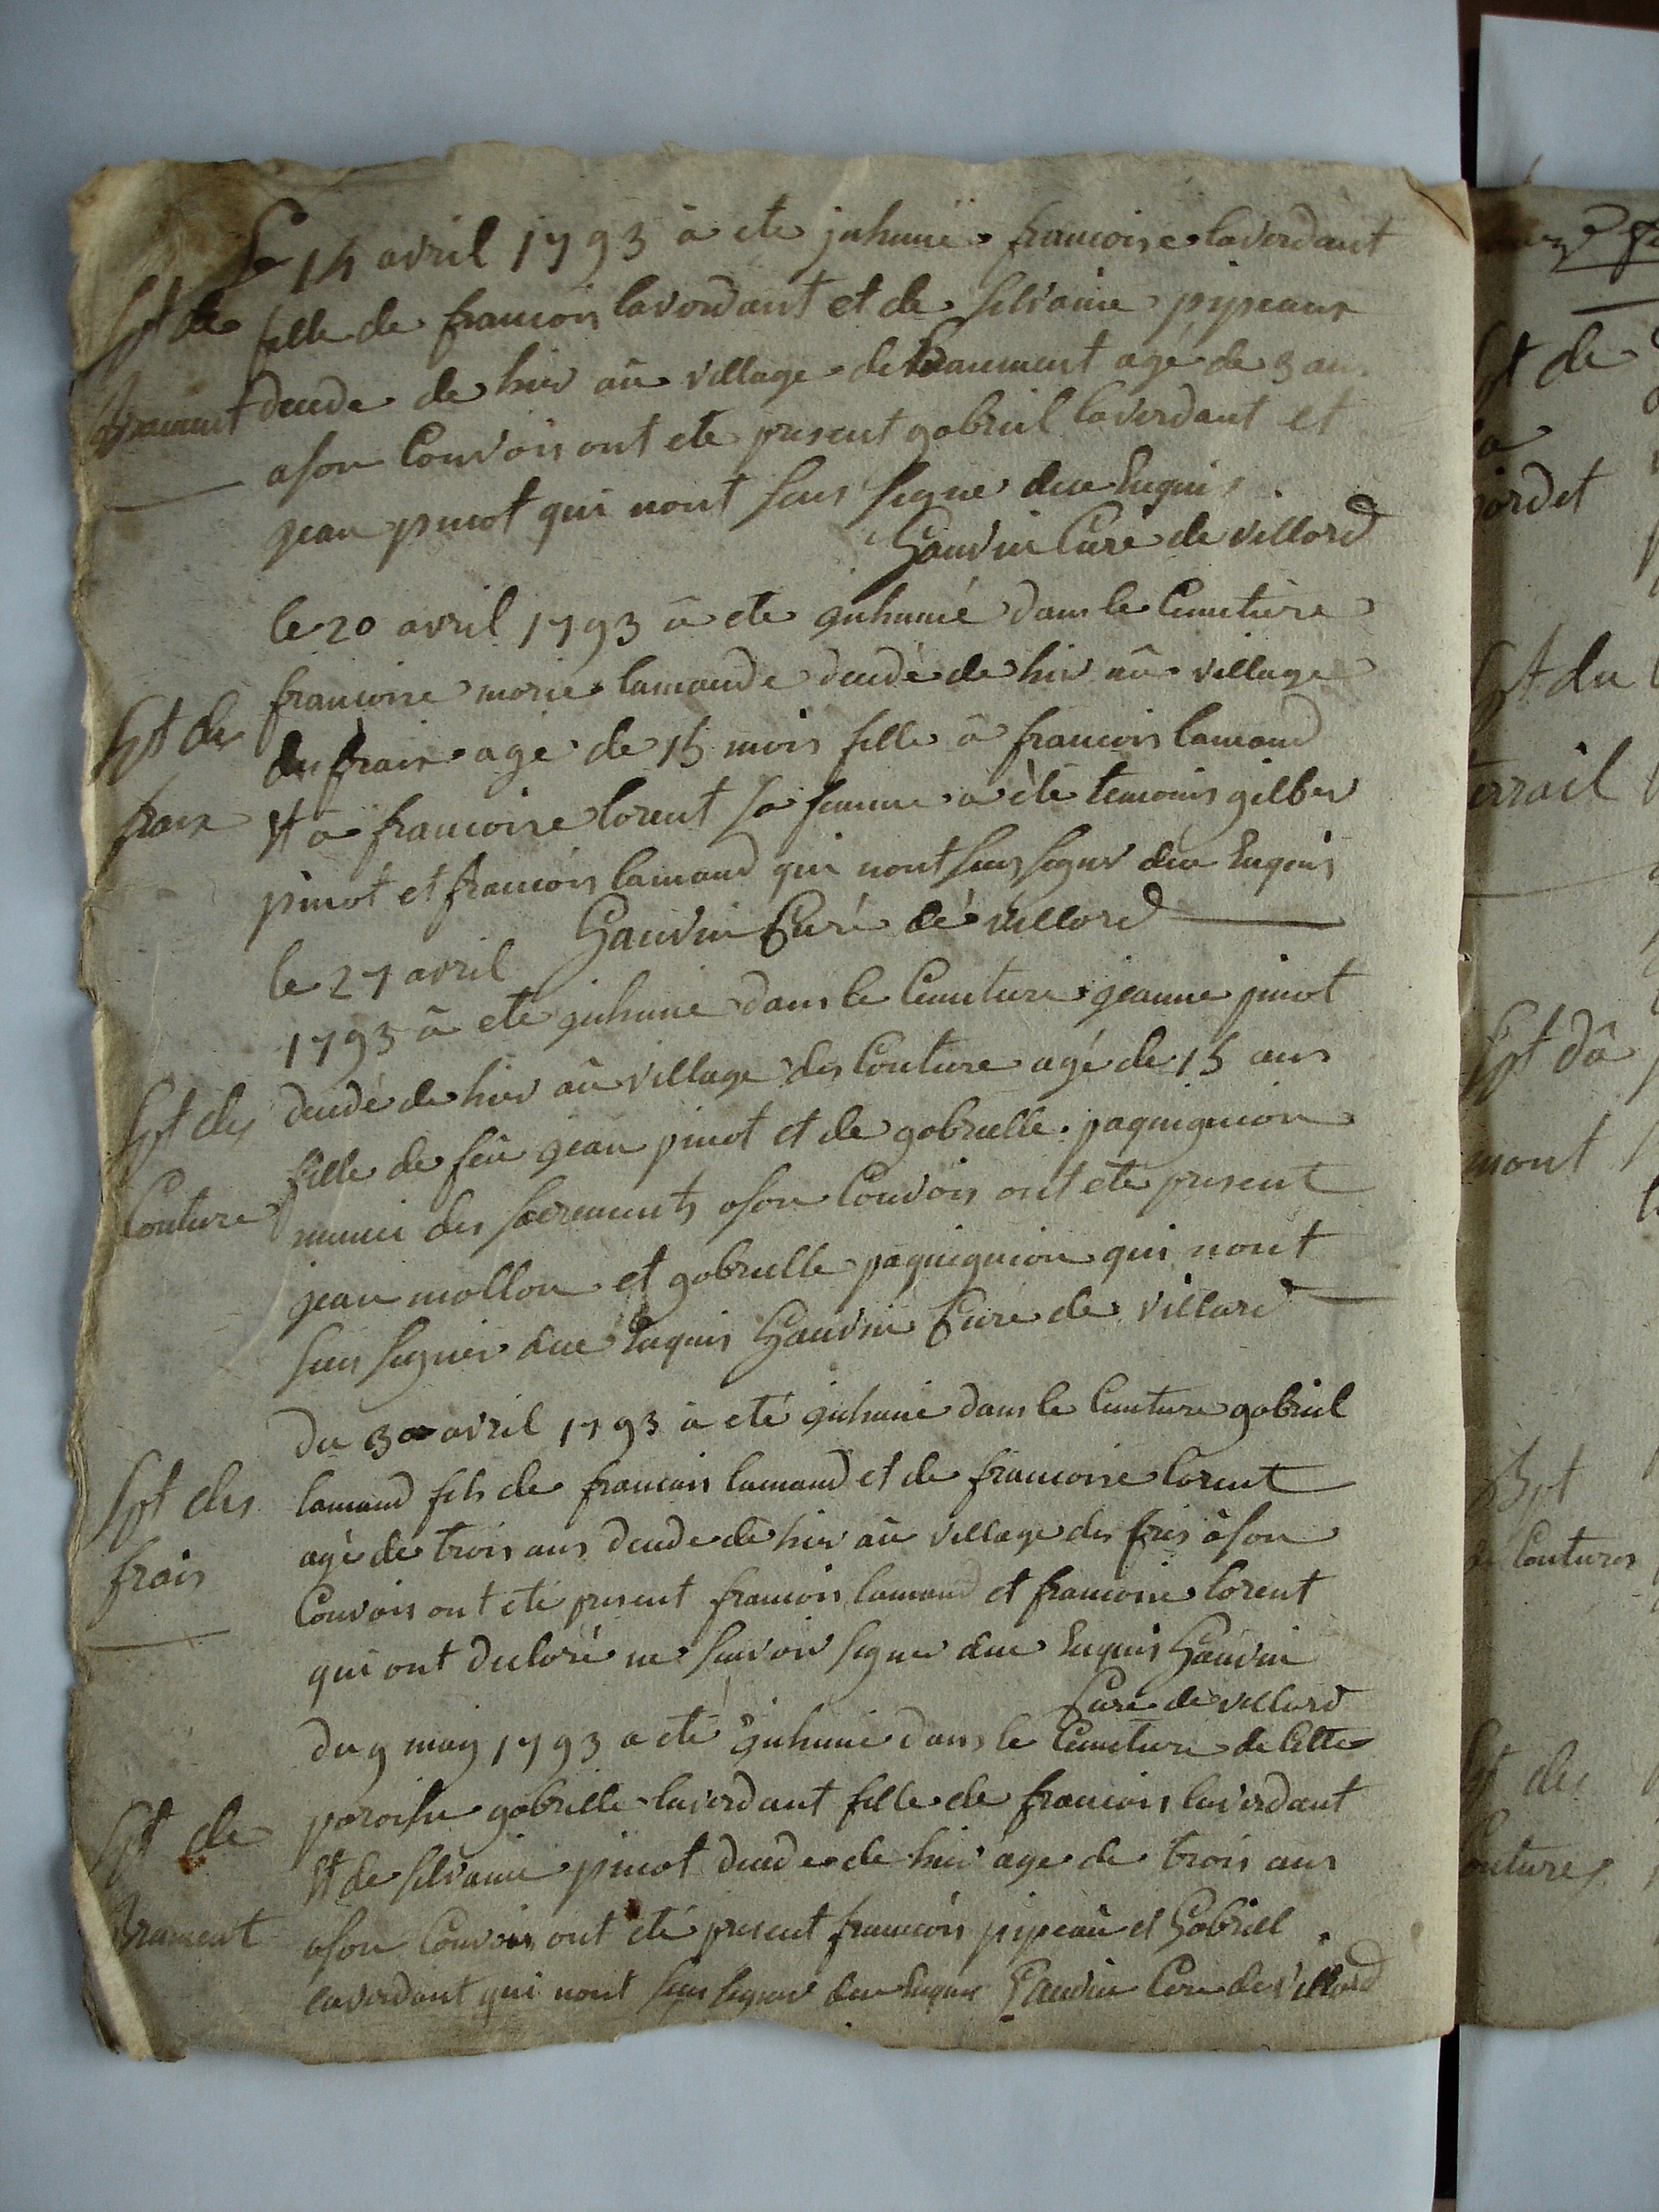 Le 14 avril 1793 â ete juhumé francoise laverdant
Spt de fille de francois laverdant et de silvaine pipeaux
decede de hier aû village de agé de 3 ans
ason Convois ont ete present gabriel laverdant et
jean pinot qui nont seus signé due Enquis
Gauvin Curé de villard
le 20 avril 1793 â ete juhumé dans le Cimetière
francoise marie lamaude decedé de hier aû village
Spt des des frais agé de 15 mois fille â francois lamaud
frais et â francoise lorent sa femme a èté temoins gilber
pinot et francois lamaud qui nont seus signer due Enquis
Gauvin Curé de villard
le 27 avril
1793 â ete juhumé dans le Cimetiere jeanne pinot
Spt des decedé de hier aû village des Couture agé de 15 ans
fille de feû jean pinot et de gabrielle paquignion
Couture munie des sacrements ason Convois ont ete present
jean mollon et gabrielle paquignion qui nont
seus signer due Enquis Gauvin Curé de villard
du 30 avril 1793 â eté juhumé dans le Cimetiere gabriel
Spt des lamaud fils de francois lamaud et de francoise lorent
agé de trois ans decede de hier aû village des fres âson
frais Convois ont eté present francois lamaud et francoise lorent
qui ont declaré ne savoir signer due Enquis Gauvin
Curé de villard
du 9 may 1793 a eté juhumé dans le Cimetiere de Cette
Spt de paroisse gabrielle laverdant fille de francois laverdant
et de silvaine pinot decede de hier âge de trois ans
ason Convois ont eté present francois pipeaû et Gabriel
laverdant qui nont seus signer due Enquis Gauvin Cure de villard
Spt de
Spt du
Spt dâ
mont
Spt
Coutures
Spt des
outures